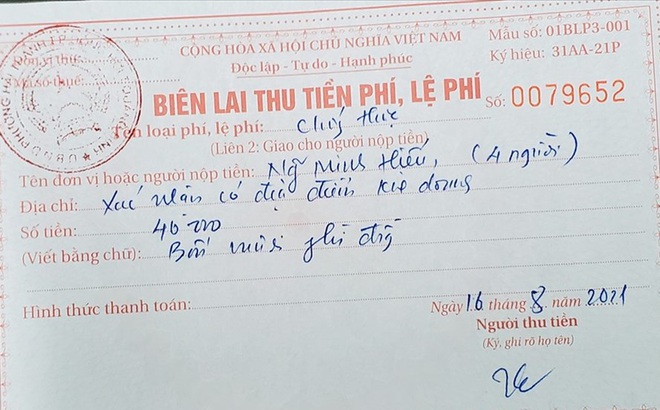 CỘNG HÒA XÃ HỘI CHỦ NGHĨA VIỆT NAM
Độc lập - Tự do - Hạnh phúc
Mẫu số: 01BLP3-001
Ký hiệu: 31AA-21P
Đơn vị thu:
Mã số thuế:
BIÊN LAI THU TIỀN PHÍ, LỆ PHÍ
Số: 0079652
Tên loại phí, lệ phí: Chứng thực
(Liên 2: Giao cho người nộp tiền)
Tên đơn vị hoặc người nộp tiền: Ng Minh Hiếu, (4 người)
Địa chỉ: Xác nhận có đặc điểm
Số tiền: 40 000
(Viết bằng chữ): Bốn mươi
Hình thức thanh toán:
Ngày 16 tháng 8 năm 2021
Người thu tiền
(Ký, ghi rõ họ tên)